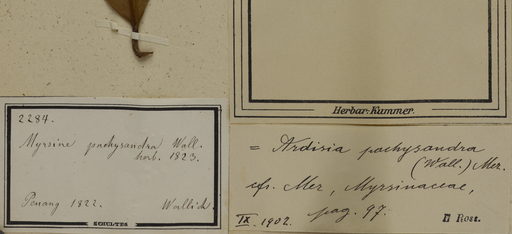 2284.
Myrsine pachysandra Wall.
herb. 1823.
Penang 1822. Wallich.
SCHULTES
Herbar-Kummer.
= Ardisia pachysandra
(Wall.) Mez.
cfr. Mez, Myrsinaceae,
pag. 97.
IX. 1902. H Ross.